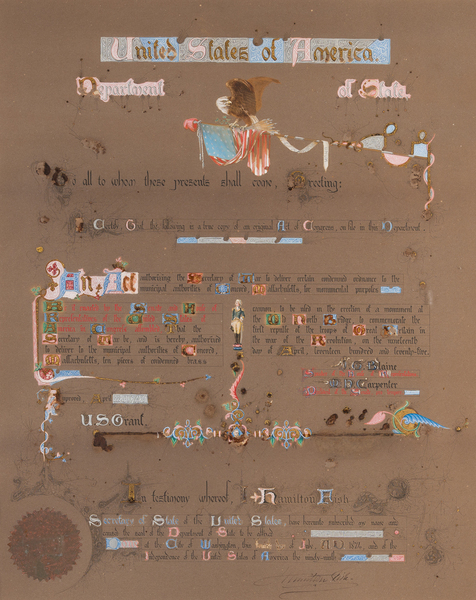 United States of America.
Department of State.
To all to whom these presents shall come, Greeting:
I Certify, That the following is a true copy of an original Act of Congress, on file in this Department.
An Act authorizing the Secretary of War to deliver certain condemned ordnance to the
municipal authorities of Concord, Massachusetts, for monumental purposes.
Be it enacted by the Senate and House of
Representatives of the United States of
America in Congress assembled That the
Secretary of War be, and is hereby authorized
to deliver to the municipal authorities of Concord,
Massachusetts, ten pieces of condemned brass
cannon to be used in the erection of a monument
at the North Bridge, to commemorate the
first repulse of the troops of Great Britain in
the war of the Revolution on the nineteenth
day of April, seventeen hundred and seventy-five.
Blaine
Carpenter
Approved, April
U.S. Grant.
In testimony whereof, I, Hamilton Fish
Secretary of State of the United States, have hereunto subscribed my name and
caused the seal of the Department of State to be affixed
at the City of Washington, this day of A.D. 1874, and of the
Independence of the United States of America the ninety-ninth
Hamilton Fish.